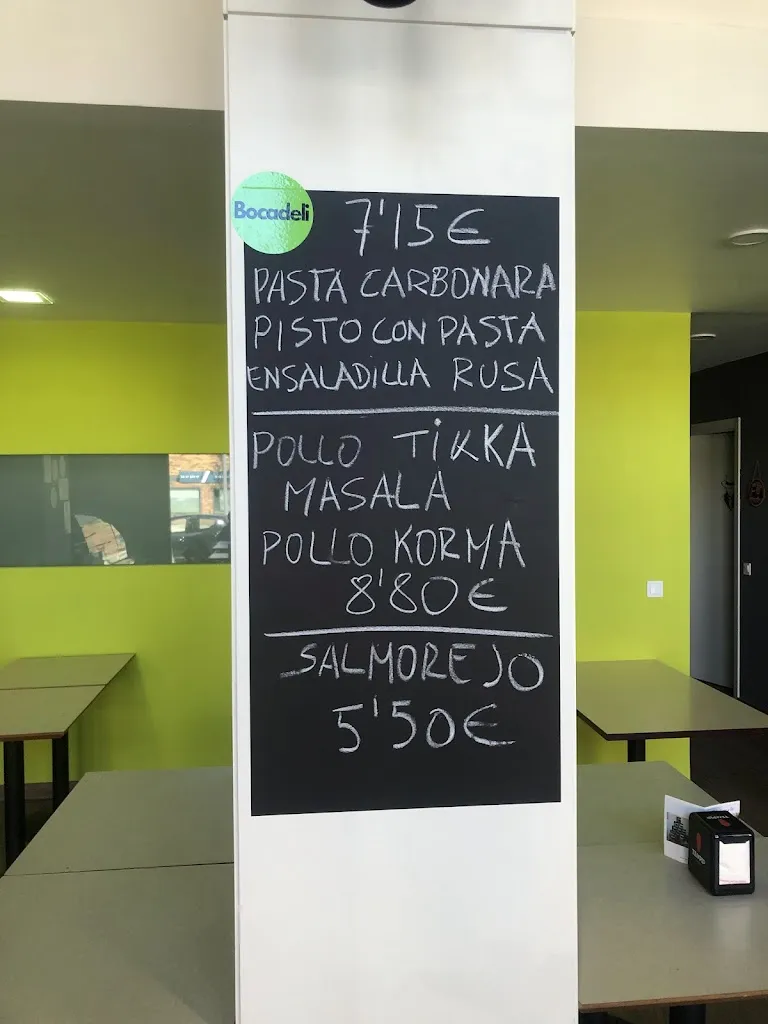 Bocadeli
7'15€
PASTA CARBONARA
PISTO CON PASTA
ENSALADILLA RUSA
POLLO TIKKA
MASALA
POLLO KORMA
8'80€
SALMOREJO
5'50€